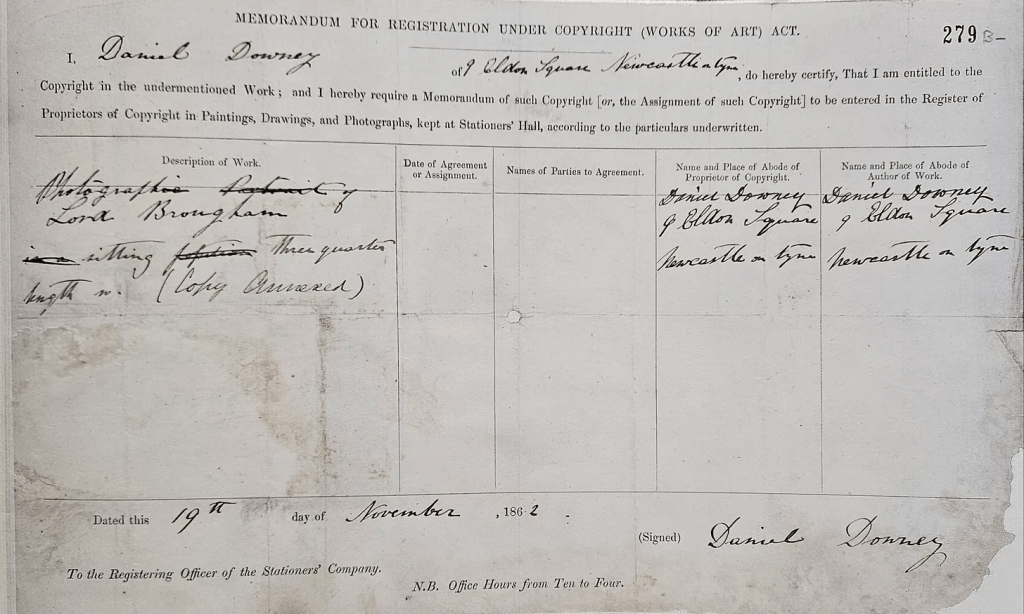 MEMORANDUM FOR REGISTRATION UNDER COPYRIGHT (WORKS OF ART) ACT.
279 B-
I, Daniel Downey of 9 Eldon Square Newcastle on tyne, do hereby certify, That I am entitled to the
Copyright in the undermentioned Work; and I hereby require a Memorandum of such Copyright [or, the Assignment of such Copyright] to be entered in the Register of
Proprietors of Copyright in Paintings, Drawings, and Photographs, kept at Stationers' Hall, according to the particulars underwritten.
Description of Work.
Photographic Portrait of
Lord Brougham
is a sitting position Three quarter
length
(Copy Annexed)
Date of Agreement
or Assignment.
Names of Parties to Agreement.
Name and Place of Abode of
Proprietor of Copyright.
Daniel Downey
9 Eldon Square
Newcastle on tyne
Name and Place of Abode of
Author of Work.
Daniel Downey
9 Eldon Square
Newcastle on tyne
Dated this 19th day of November, 1862.
(Signed) Daniel Downey
To the Registering Officer of the Stationers' Company.
N.B. Office Hours from Ten to Four.